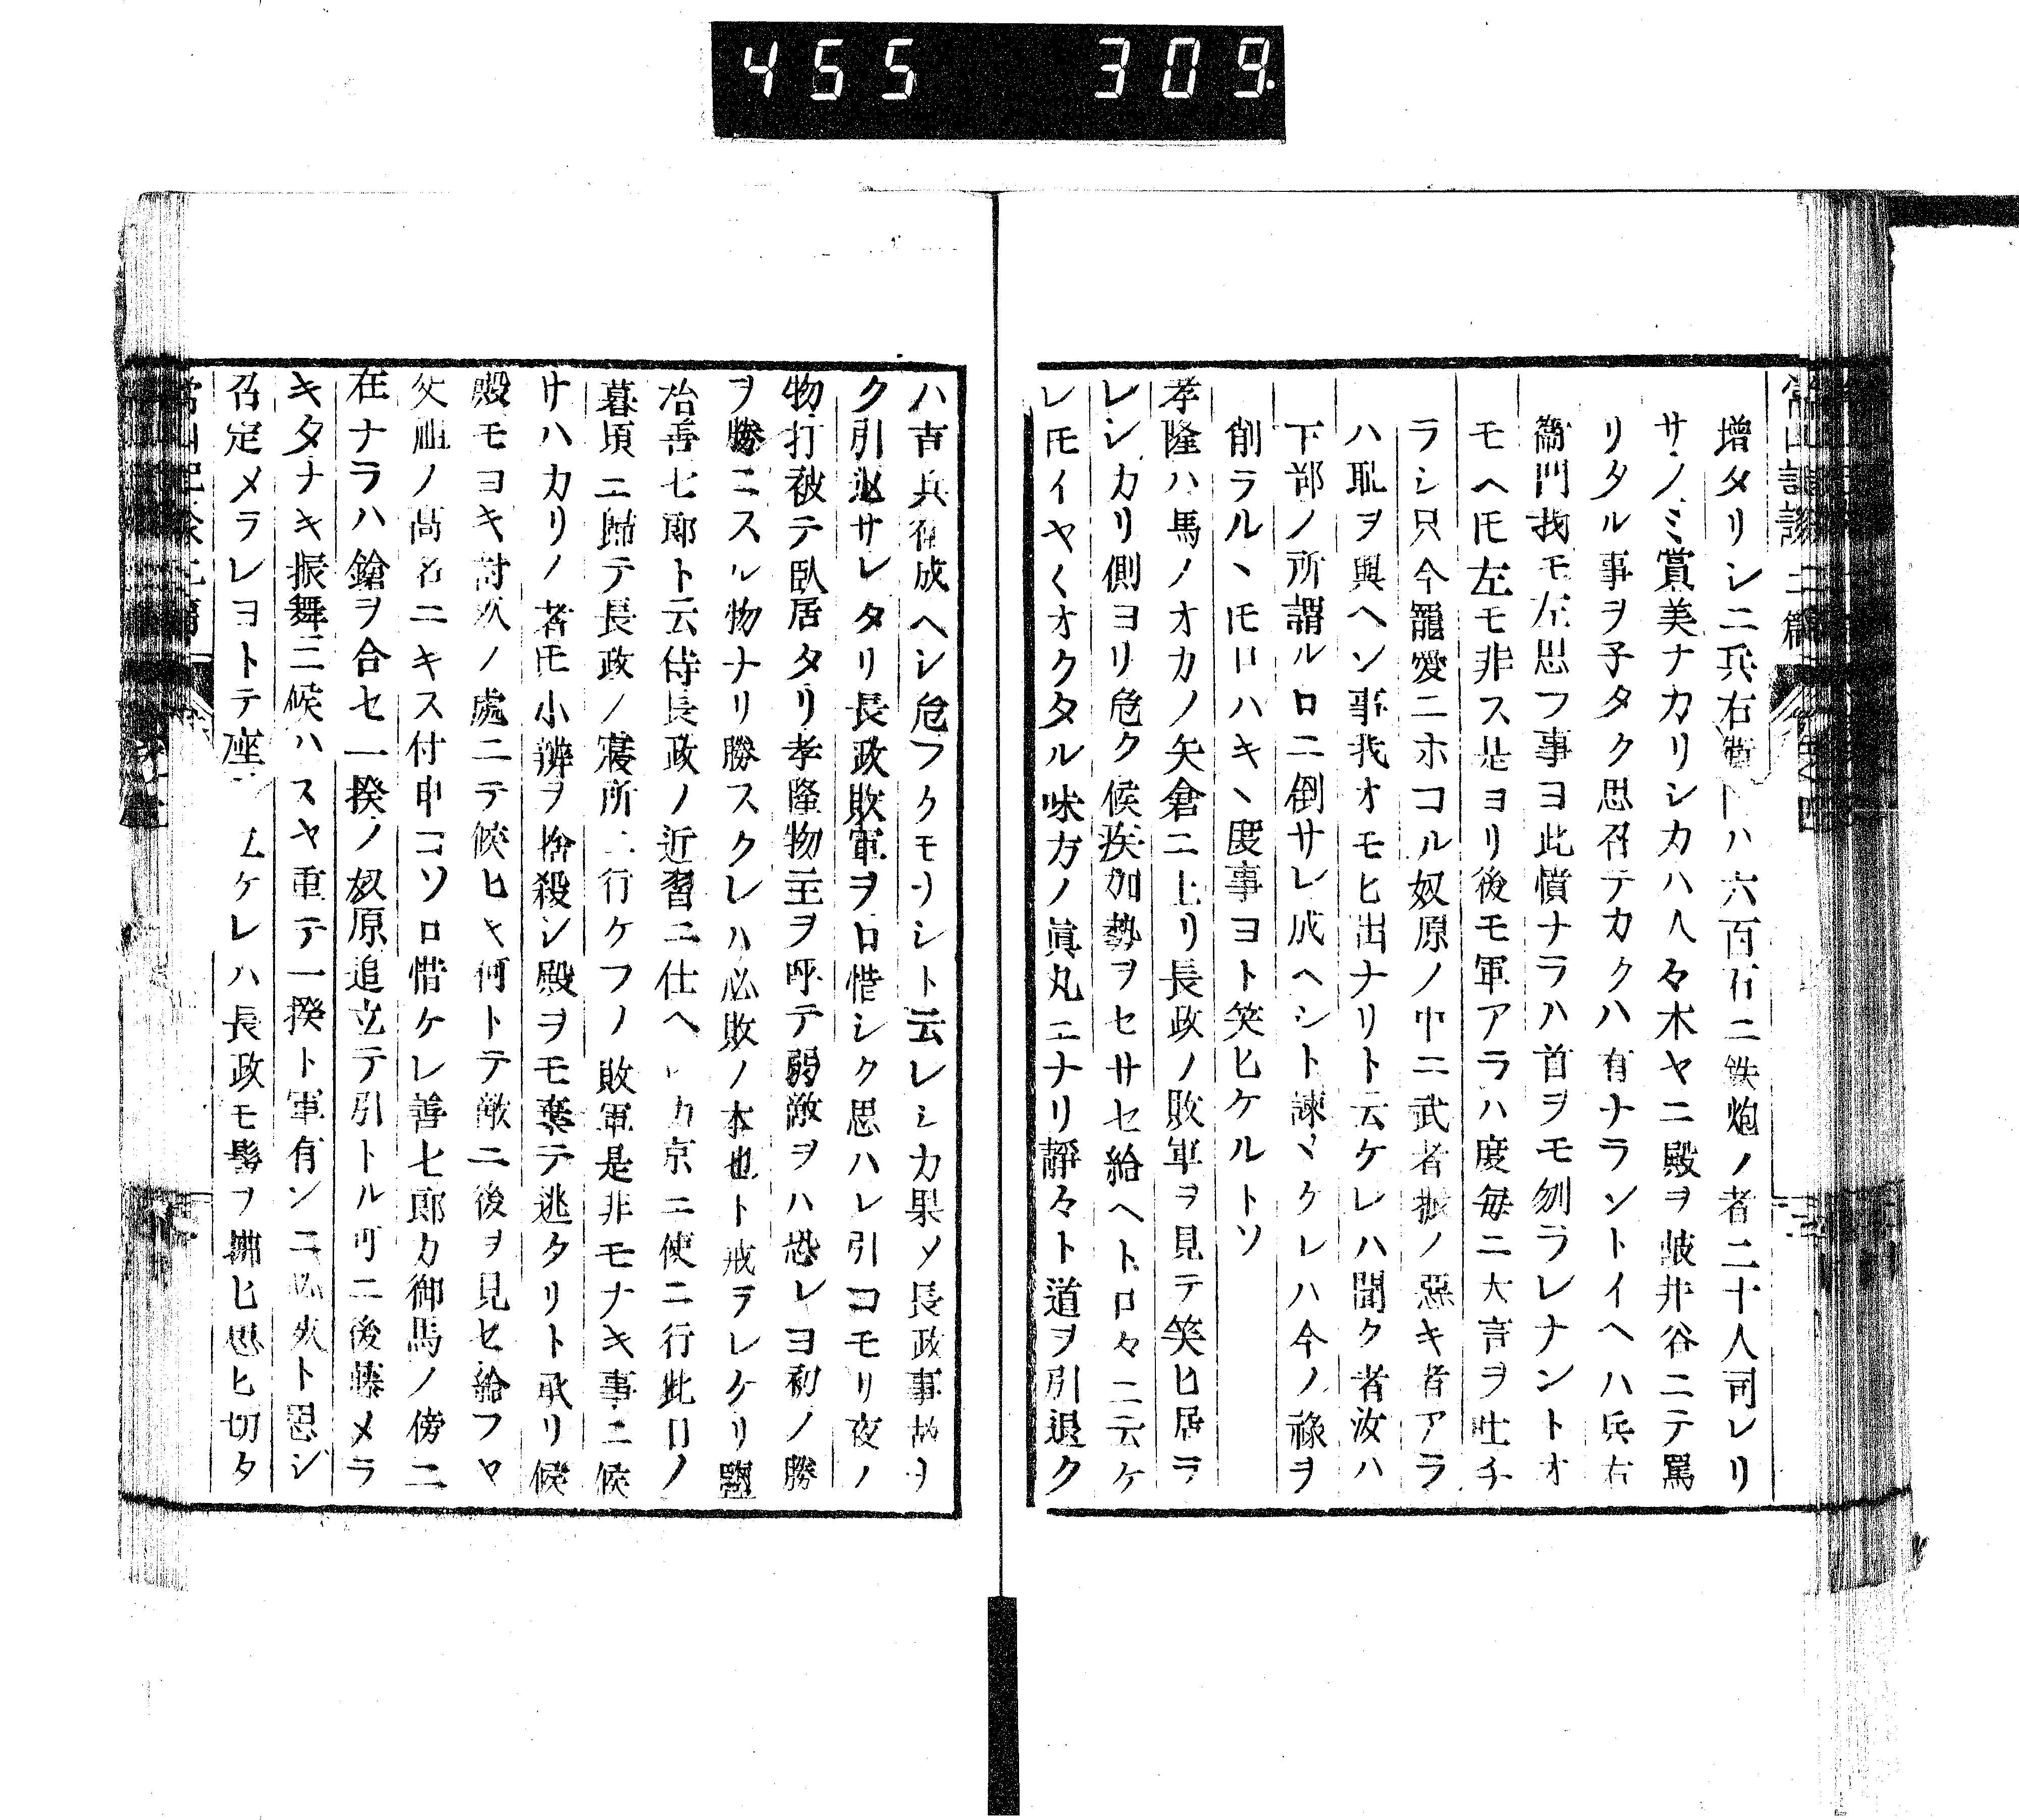 455 309.
増タリシニ兵右衛門ハ六百石ニ鉄炮ノ者二十人司レリ
サノミ賞美ナカリシカハ人々木ヤニ殿ヲ岐井谷ニテ罵
リタル事ヲ子タク思召テカクハ有ナラントイヘハ兵右
衛門我モ左思フ事ヨ此憤ナラハ首ヲモ刎ラレナントオ
モヘ𪜈左モ非ス是ヨリ後モ軍アラハ度毎ニ大言ヲ吐チ
ラシ只今寵愛ニホコル奴原ノ中ニ武者振ノ惡キ者アラ
ハ恥ヲ與ヘン事我オモヒ出ナリト云ケレハ聞ク者汝ハ
下部ノ所謂ル口ニ倒サレ成ヘシト諫〻ケレハ今ノ祿ヲ
削ラルヽ𪜈口ハキヽ度事ヨト笑ヒケルトソ
孝隆ハ馬ノオカノ矢倉ニ上リ長政ノ敗軍ヲ見テ笑ヒ居ラ
レシカリ側ヨリ危ク候疾加勢ヲセサセ給ヘト口々ニ云ケ
レ𪜈イヤ〱オクタル味方ノ眞丸ニナリ靜々ト道ヲ引退ク
ハ吉兵衛成ヘシ危フクモナシト云レシカ果〆長政事故ヲ
ク引返サレタリ長政敗軍ヲ口惜シク思ハレ引コモリ夜ノ
物打被テ臥居タリ孝隆物主ヲ呼テ弱敵ヲハ恐レヨ初ノ勝
ヲ勝ニスル物ナリ勝スクレハ必敗ノ本也ト戒ラレケリ鹽
冶善七郎ト云侍長政ノ近習ニ仕ヘシカ京ニ使ニ行此日ノ
暮頃ニ歸テ長政ノ寢所ニ行ケフノ敗軍是非モナキ事ニ候
サハカリノ者𪜈小辨ヲ捨殺シ殿ヲモ棄テ逃タリト承リ候
殿モヨキ討死ノ處ニテ候ヒキ何トテ敵ニ後ヲ見セ給フヤ
父祖ノ高名ニキス付申コソロ惜ケレ善七郎カ御馬ノ傍ニ
在ナラハ鎗ヲ合セ一揆ノ奴原追立テ引トル可ニ後藤メラ
キタナキ振舞ニ候ハスヤ重テ一揆ト軍有ンニ必死ト思シ
召定メラレヨトテ座 ケレハ長政モ髻ヲ拂ヒ思ヒ切タ